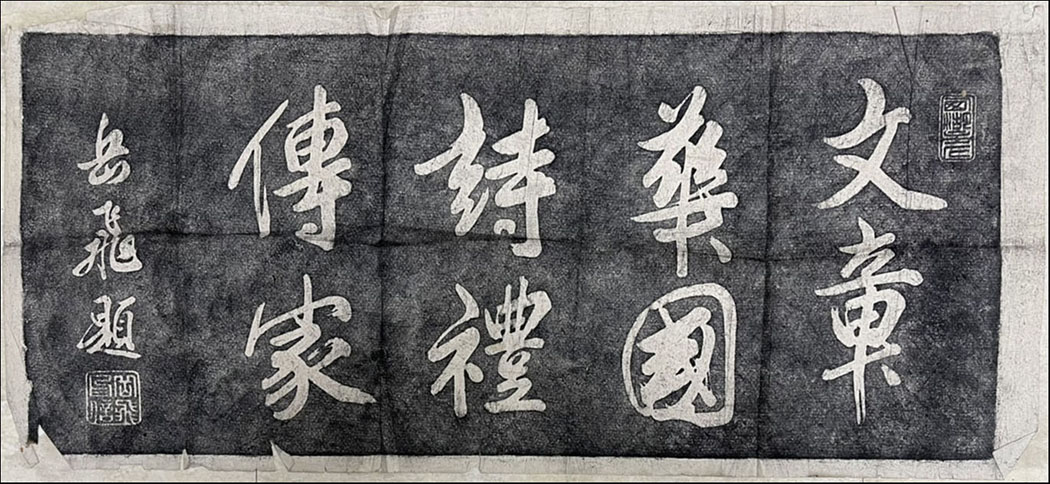 文章
華國
詩禮
傳家
岳飛題